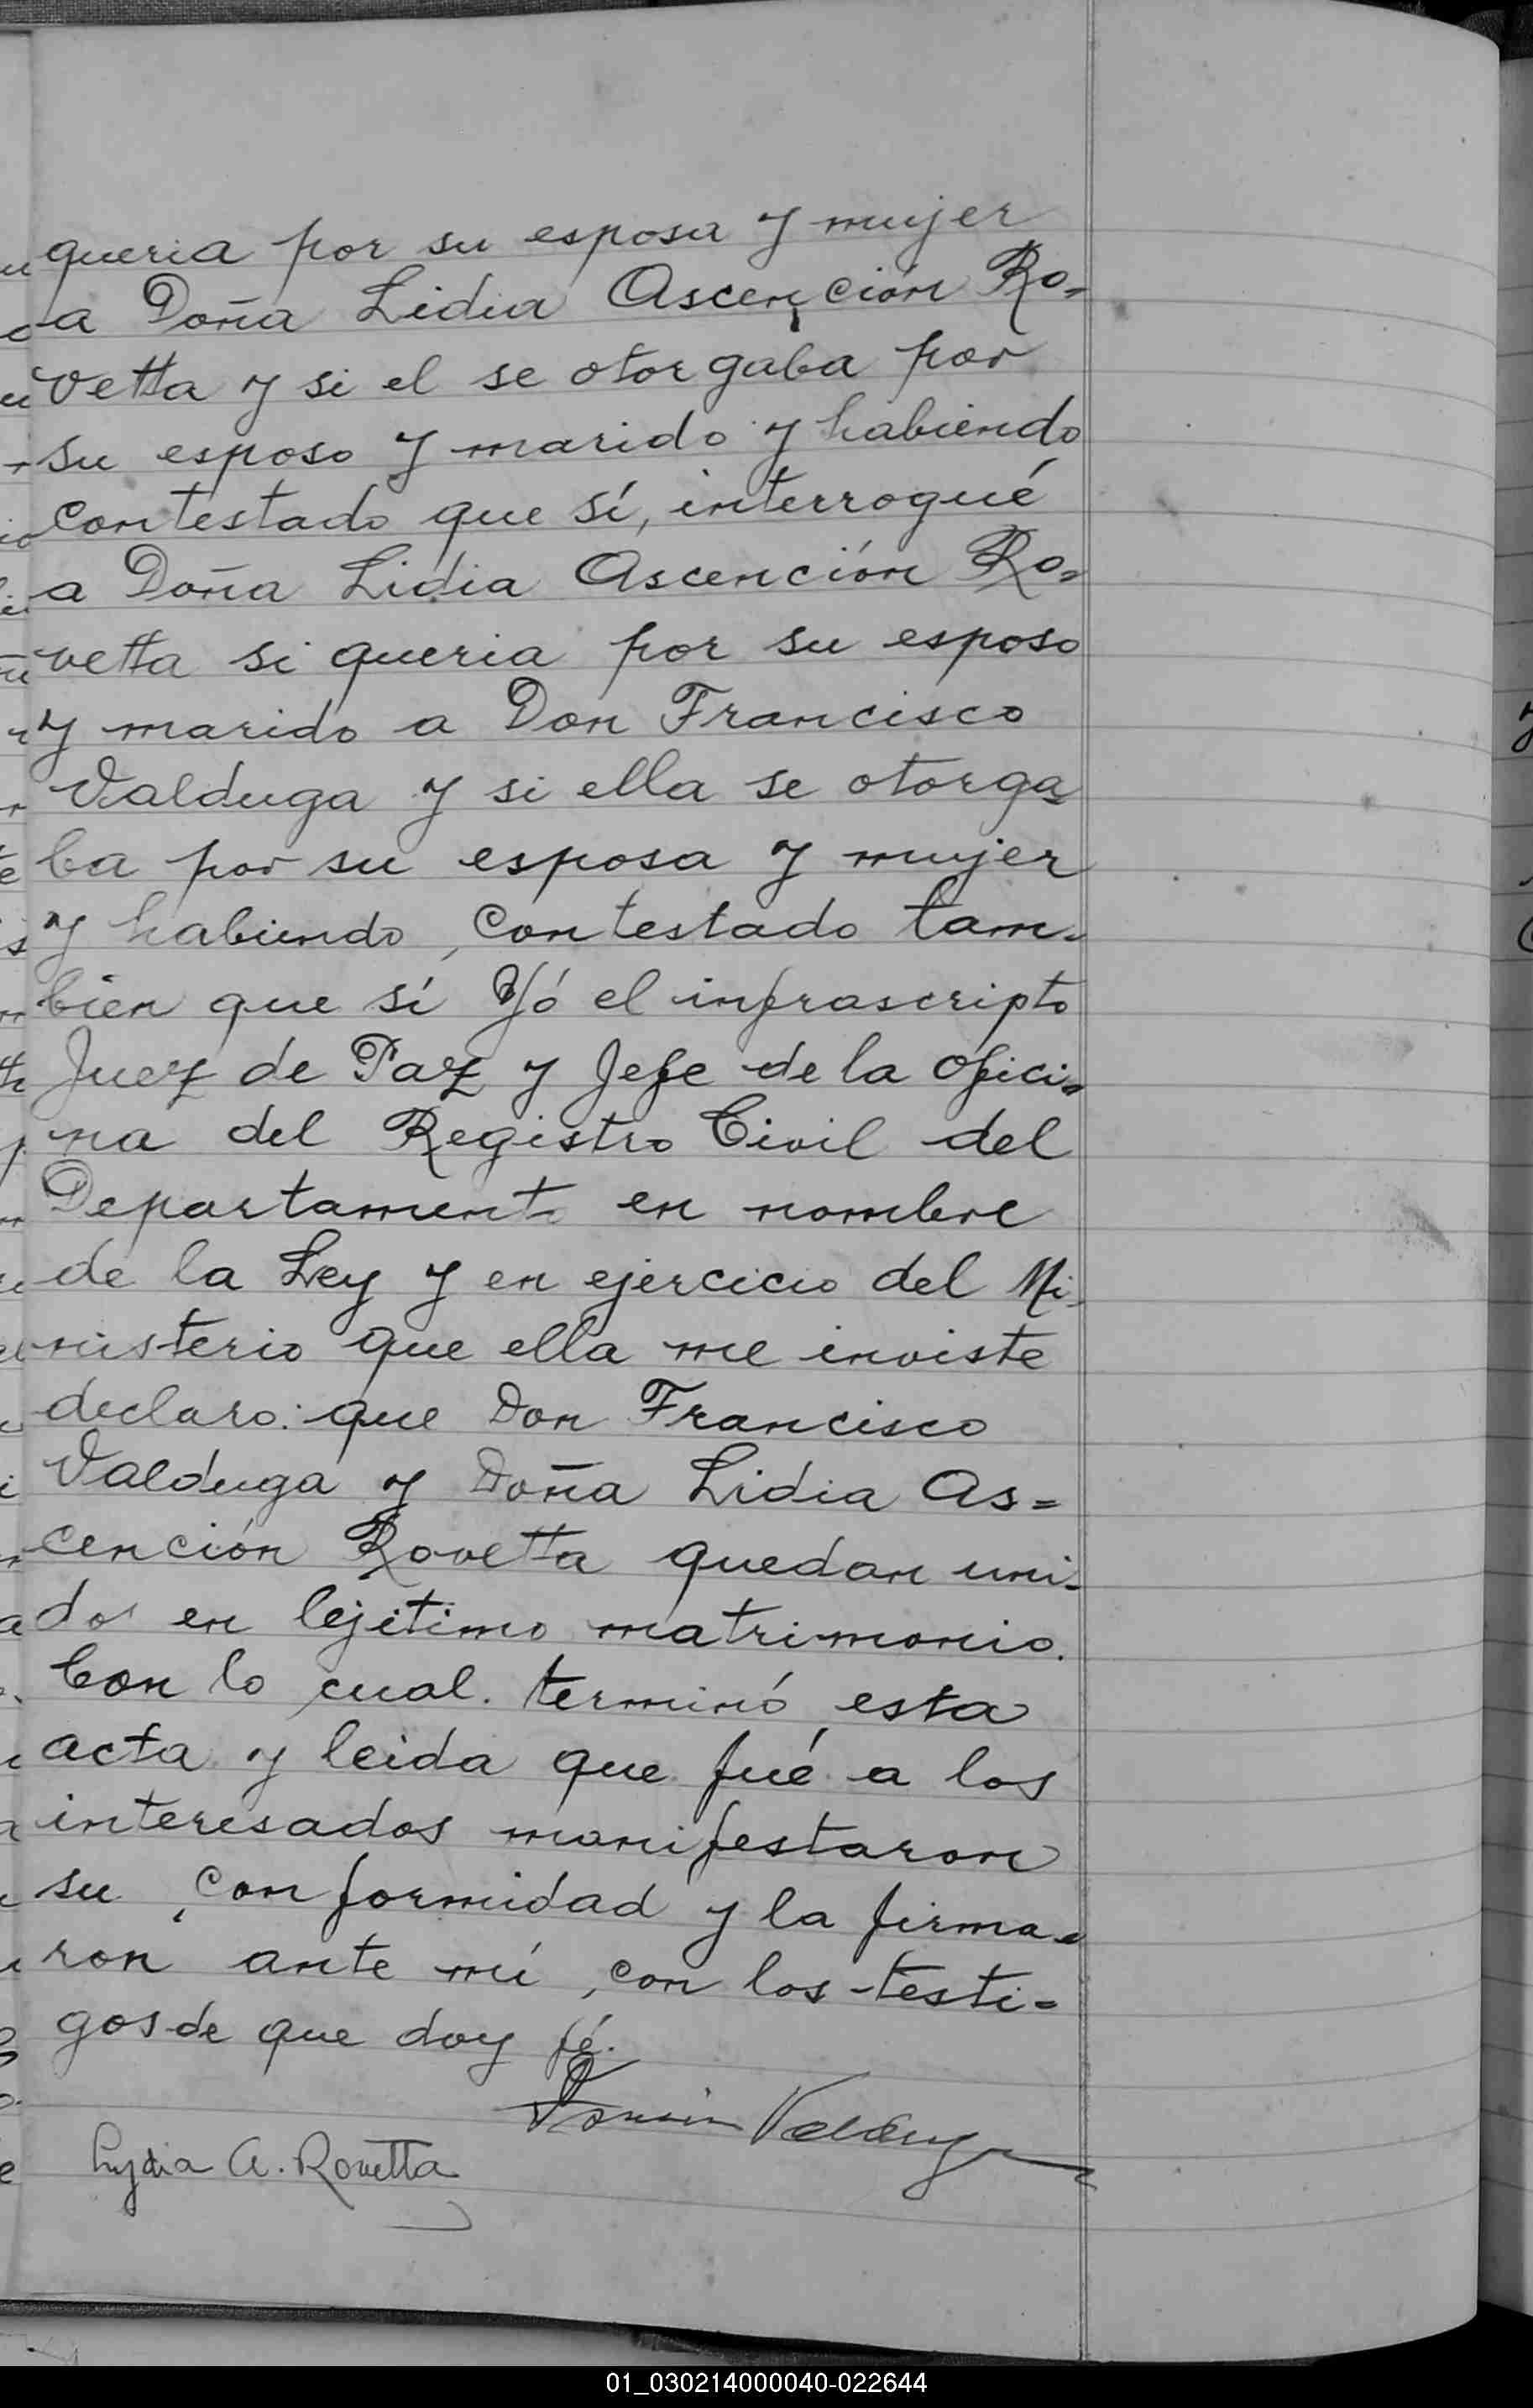 queria por su esposa y mujer
a Doña Lidia Ascención Ro=
vetta y si el se otorgaba por
su esposo y marido y habiendo
contestado que sí, interrogué
a Doña Lidia Ascención Ro=
vetta si queria por su esposo
y marido a Don Francisco
Valduga y si ella se otorga
ba por su esposa y mujer
y habiendo contestado tam-
bien que sí Yó el infrascripto
Juez de Paz y Jefe de la ofici=
na del Registro Civil del
Departamento en nombre
de la Ley y en ejercicio del Mi-
nisterio que ella me inviste
declaro: que Don Francisco
Valduga y Doña Lidia As=
cención Rovetta quedan uni-
dos en lejitimo matrimonio.
Con lo cual. terminó esta
acta y leida que fué a los
interesados manifestaron
su conformidad y la firma=
ron ante mí, con los testi=
gos de que doy fé.
Valduga
Lydia A. Rovetta
01_030214000040-022644